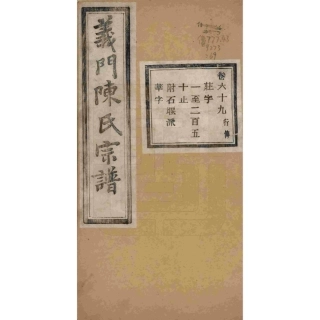 義門陳氏宗譜
卷六十九 行傳
莊字
一至二百五
十止
附石堰派
華字